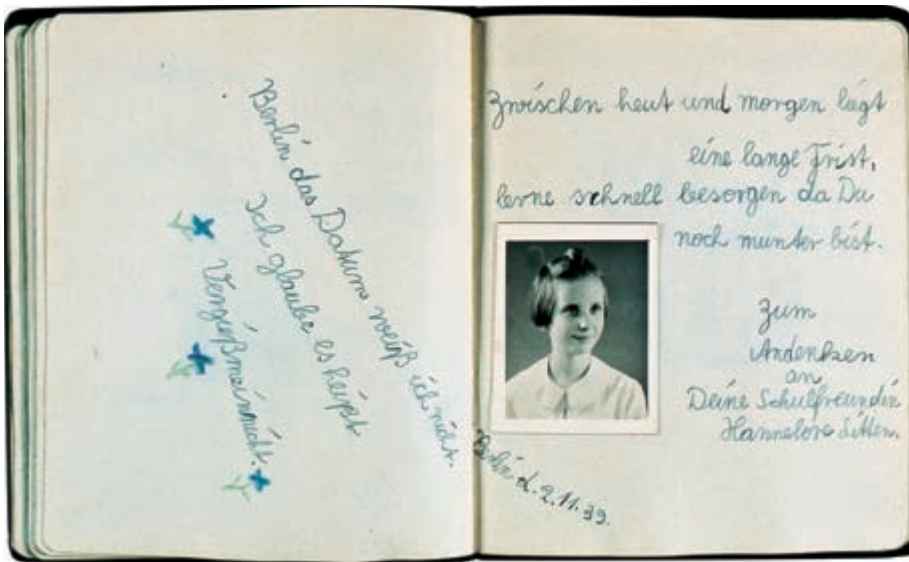 Berlin das Datum weiß ich nicht.
Ich glaube es heißt
Vergißmeinnicht.
Zwischen heut und morgen lägt
eine lange Frist,
lerne schnell besorgen da Du
noch munter bist.
Zum
Andenken
an
Deine Schulfreundin
Hannelore
Berlin d. 2.11.39.